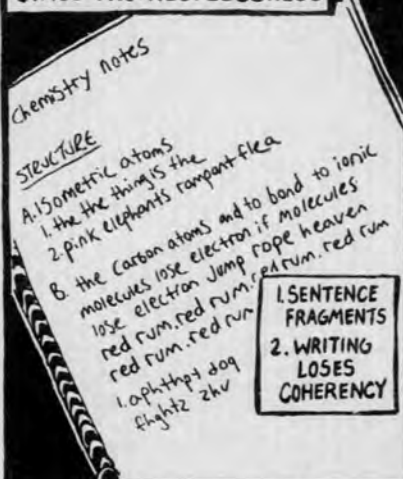 Chemistry notes
STRUCTURE
A. ISometric atoms
1. the the thing is the
2. pink elephants rampant flea
B. the Carbon atoms and to bond to ionic
molecules lose electron if molecules
lose electron Jump rope heaven
red rum. red rum. red rum. red rum
red rum. red rum
1. aphthpy dog
1. SENTENCE
FRAGMENTS
2. WRITING
LOSES
COHERENCY